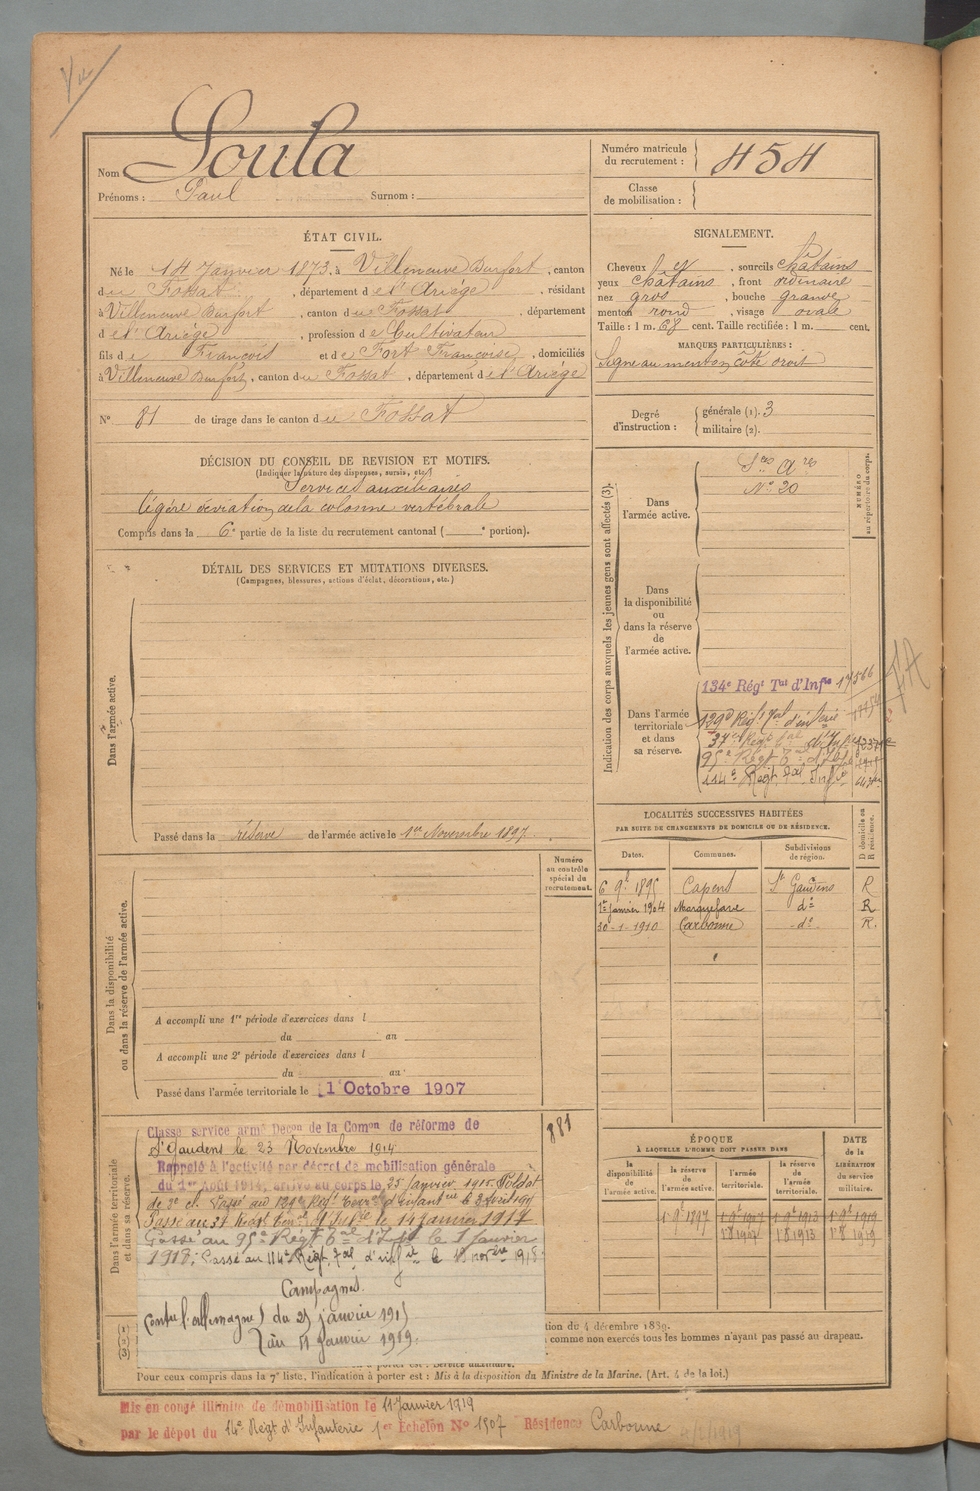 Vu
Nom Soula
Prénoms : Paul Surnom :
Numéro matricule du recrutement : 454
Classe de mobilisation :
ÉTAT CIVIL.
Né le 14 Janvier 1873, à Villeneuve Durfort, canton
du Fossat, département de l'Ariège, résidant
à Villeneuve Durfort, canton du Fossat, département
de l'Ariège, profession de Cultivateur
fils de François et de Fort Françoise, domiciliés
à Villeneuve Durfort, canton du Fossat, département de l'Ariège
N° 81 de tirage dans le canton du Fossat
SIGNALEMENT.
Cheveux et, sourcils châtains
yeux châtains, front ordinaire
nez gros, bouche grande
menton rond, visage ovale
Taille : 1 m. 68 cent. Taille rectifiée : 1 m. cent.
MARQUES PARTICULIÈRES :
Signe au menton, côté droit
Degré d'instruction :
générale (1). 3
militaire (2).
DÉCISION DU CONSEIL DE REVISION ET MOTIFS.
(Indiquer la nature des dispenses, sursis, etc.)
Services auxiliaires
légère déviation de la colonne vertébrale
Compris dans la 6e partie de la liste du recrutement cantonal ( e portion).
DÉTAIL DES SERVICES ET MUTATIONS DIVERSES.
(Campagnes, blessures, actions d'éclat, décorations, etc.)
Dans l'armée active.
Passé dans la réserve de l'armée active le 1er Novembre 1897.
Indication des corps auxquels les jeunes gens sont affectés (3).
NUMÉRO au répertoire du corps.
Dans l'armée active.
Sces Aires
N° 20
Dans la disponibilité ou dans la réserve de l'armée active.
Dans l'armée territoriale et dans sa réserve.
134e Régt Tal d'Infie 17566
129e Régt Tal d'infie
37e Régt Tal d'Infie
95e Régt Tal d'Infie
114e Régt Tal Infie
LOCALITÉS SUCCESSIVES HABITÉES
PAR SUITE DE CHANGEMENTS DE DOMICILE OU DE RÉSIDENCE.
Dates. Communes. Subdivisions de région. D domicile ou R résidence.
6 9bre 1895 Capens St Gaudens R
1er janvier 1904 Marquefave do R
30-1-1910 Carbonne do R.
Numéro au contrôle spécial du recrutement.
Dans la disponibilité ou dans la réserve de l'armée active.
A accompli une 1re période d'exercices dans l
du au
A accompli une 2e période d'exercices dans l
du au
Passé dans l'armée territoriale le 1 Octobre 1907
Dans l'armée territoriale et dans sa réserve.
881
Classé service armé Decon de la Comon de réforme de
St Gaudens le 23 Novembre 1914
Rappelé à l'activité par décret de mobilisation générale
du 1er Août 1914, arrivé au corps le 25 Janvier 1915. Soldat
de 2e cl. Passé au 129e Régt Terral d'Infantie le 3 Avril
Passé au 37 Régt Terral d'Infie le 14 janvier 1917
Passé au 95e Régt Tal d'Infie le 1 janvier
1918; Passé au 114e Régt Tal d'infie le
Campagnes.
Contre l'allemagne) du 25 janvier 1915
) au 11 janvier 1919.
ÉPOQUE
À LAQUELLE L'HOMME DOIT PASSER DANS
la disponibilité de l'armée active.
la réserve de l'armée active.
l'armée territoriale.
la réserve de l'armée territoriale.
DATE DE LA LIBÉRATION du service militaire.
1 9bre 1897 1 9bre 1907 1 9bre 1913 1 9bre 1919
tion du 4 décembre 1889.
comme non exercés tous les hommes n'ayant pas passé au drapeau.
à porter est : Service auxiliaire.
Pour ceux compris dans la 7e liste, l'indication à porter est : Mis à la disposition du Ministre de la Marine. (Art. 4 de la loi.)
Mis en congé illimité de démobilisation le 11 Janvier 1919
par le dépôt du 14e Régt d'Infanterie 1er Echelon No 1507 Résidence Carbonne